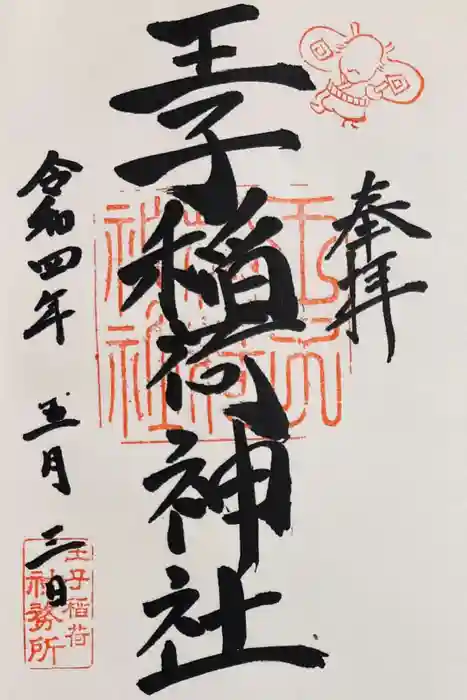 奉拝
王子稲荷神社
令和四年 五月 三日
王子稲荷神社
王子稲荷
社務所